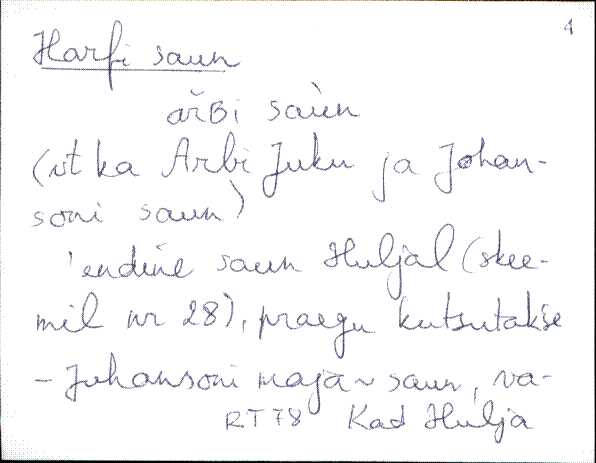 4
Harfi saun
ařʙi saùn
(vt ka Arbi Juku ja Johan-
soni saun)
'endine saun Huljal (skee-
mil nr 28), praegu kutsutakse
- Juhansoni maja ~ saun, va-
RT78 Kad Hulja